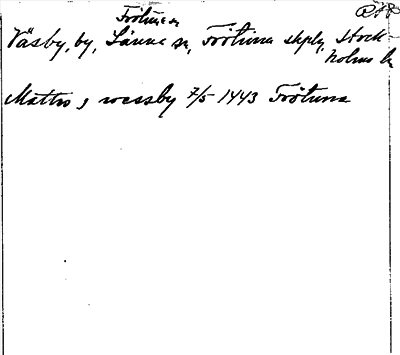 Frötuna
Väsby, by, Länna sn, Frötuna skplg, Stock-
holms l.
Mattis j wessby 7/5 1443 Frötuna